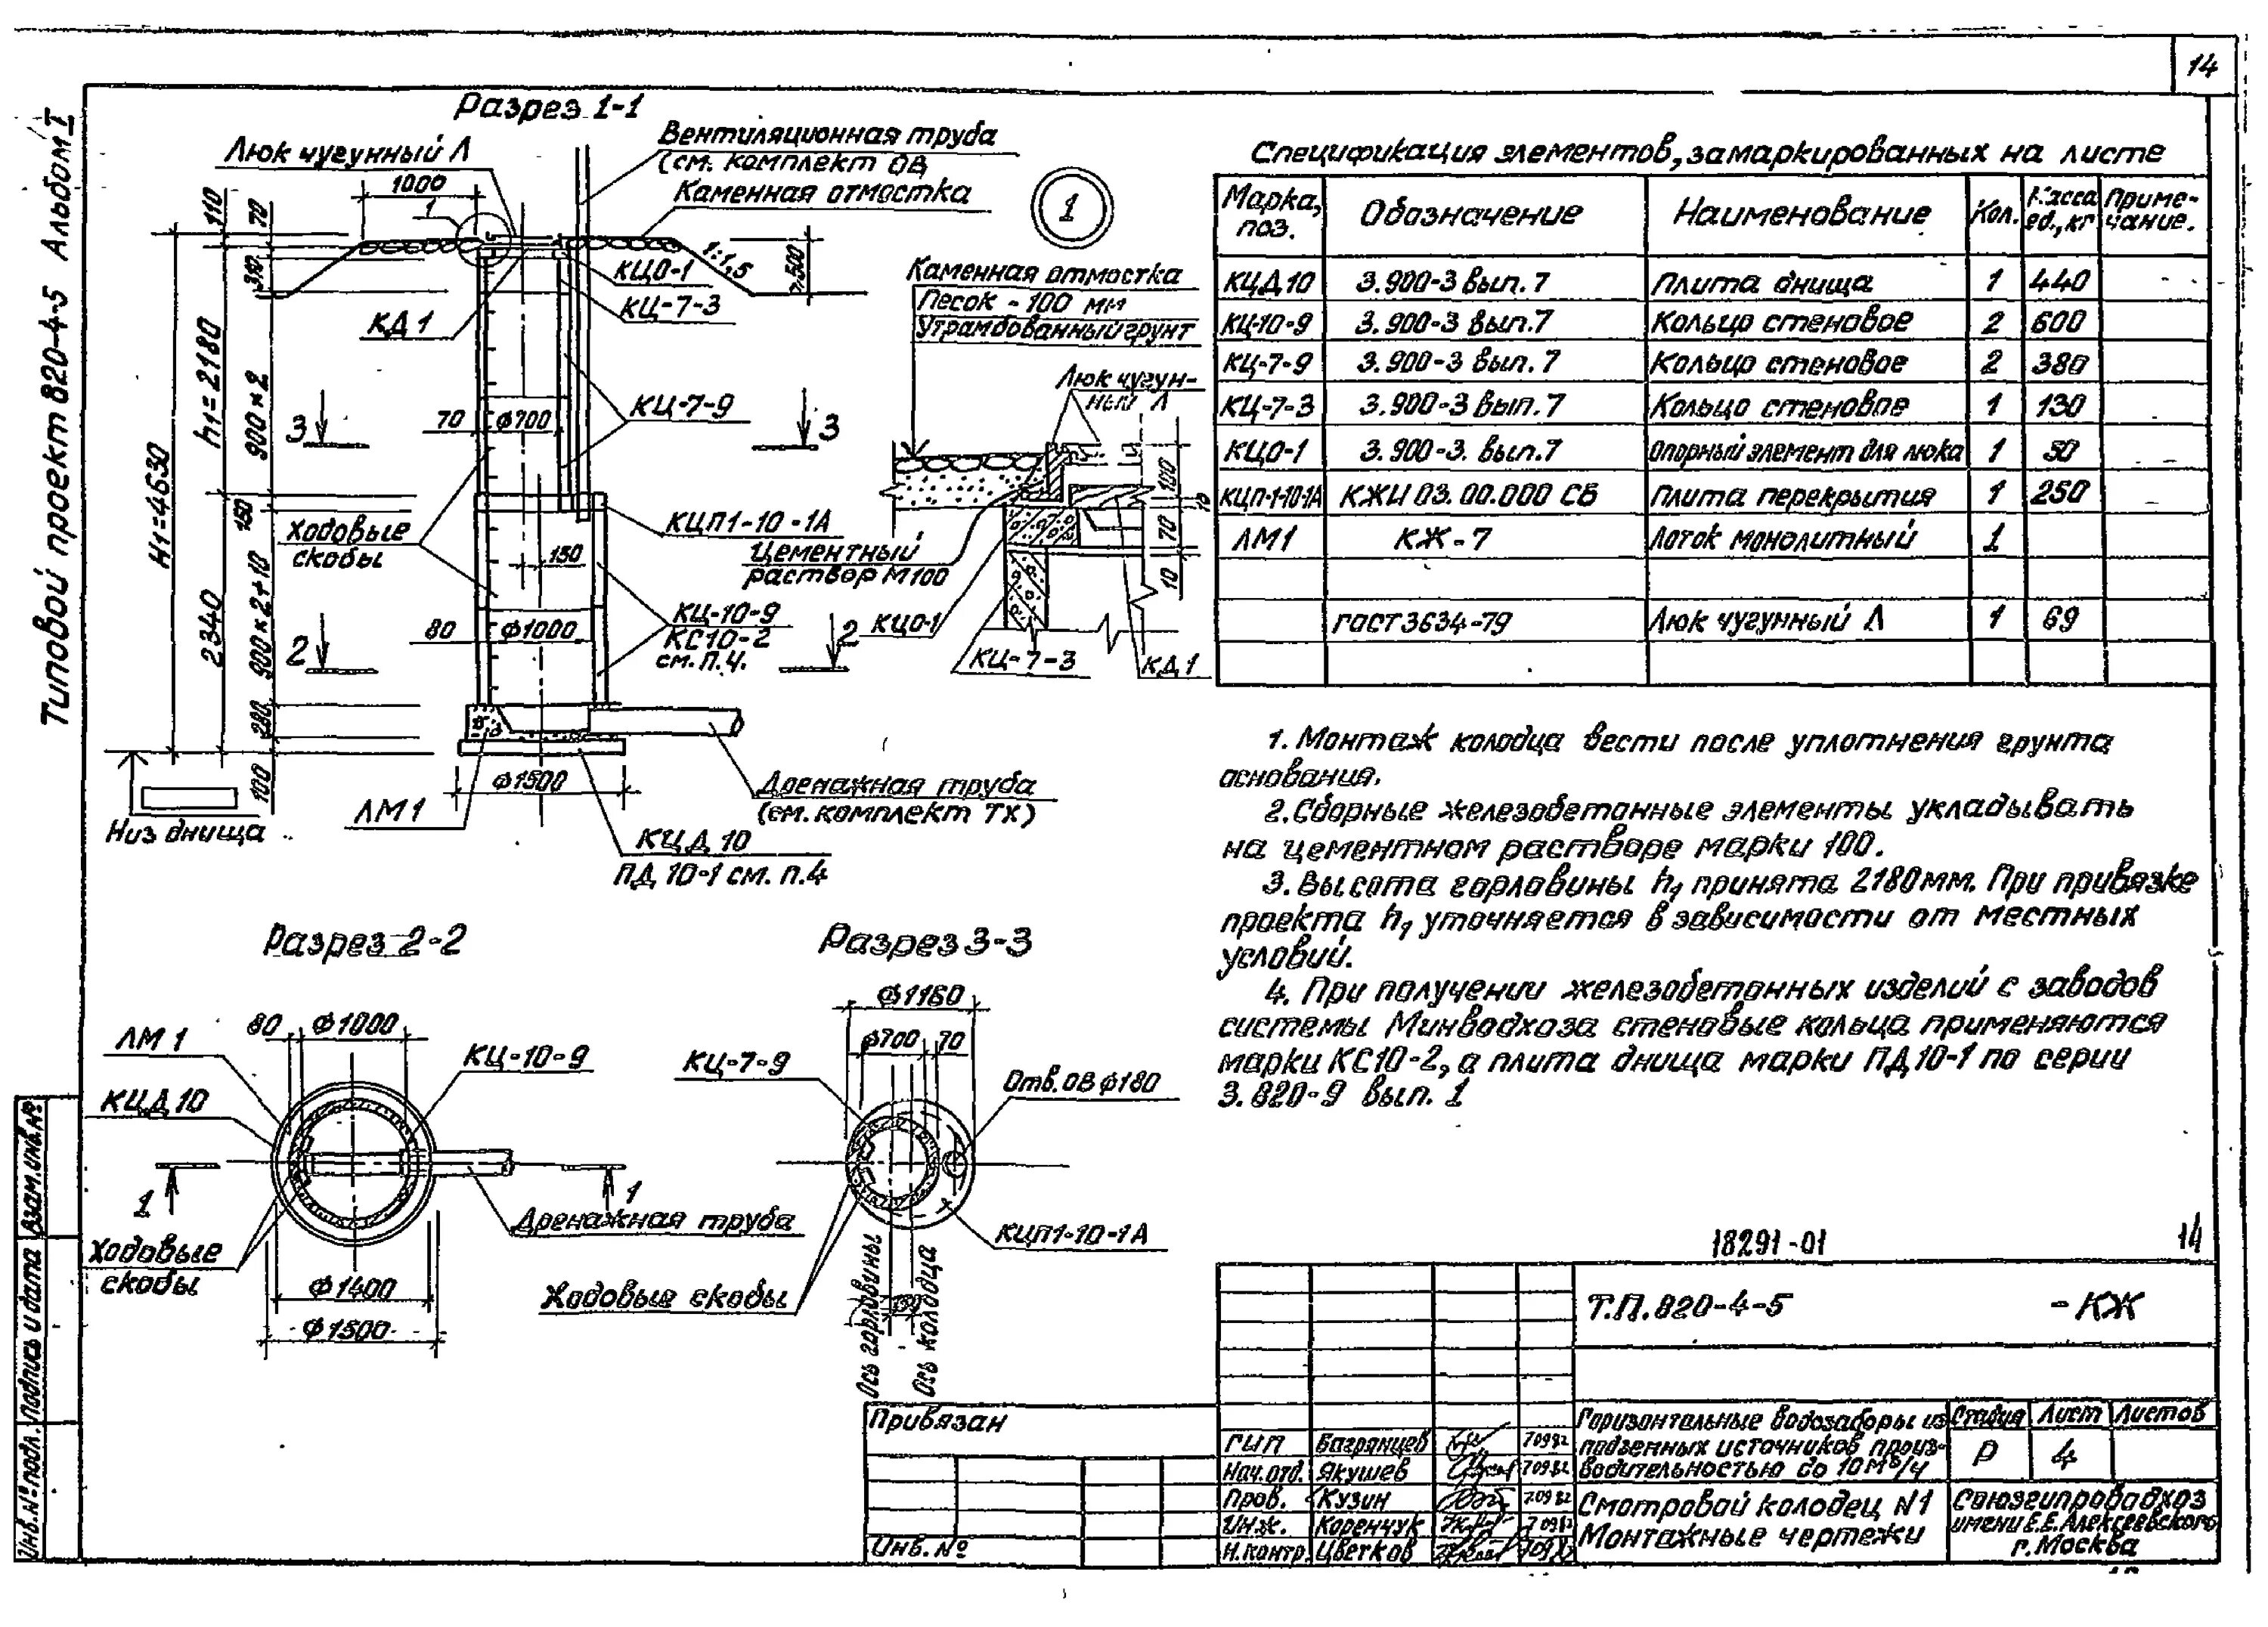 14
Типовой проект 820-4-5 Альбом I
Разрез 1-1
Люк чугунный Л
Вентиляционная труба
(см. комплект ОВ
Каменная отмостка
1000
1
110
70
1:1,5
КЦО-1
КЦ-7-3
КД1
h₁=2180
900×2
H₁=4630
3
3
70
ф700
КЦ-7-9
150
Ходовые
скобы
КЦП1-10-1А
150
900×2+10
2340
КЦ-10-9
КС10-2
см. п.4.
80
ф1000
2
2
280
100
Низ днища
ЛМ1
ф1500
Дренажная труба
(см. комплект ТХ)
КЦД 10
ПД 10-1 см. п.4
1
Каменная отмостка
Песок - 100 мм
Утрамбованный грунт
Люк чугун-
ный Л
Цементный
раствор М100
70
10
КЦО-1
КЦ-7-3
КД1
Разрез 2-2
80
ф1000
ЛМ 1
КЦ-10-9
КЦД 10
1
1
Дренажная труба
Ходовые
скобы
ф1400
ф1500
Разрез 3-3
ф1160
ф700
70
КЦ-7-9
Отв. ОВ ф180
КЦП1-10-1А
Ходовые скобы
150
Ось горловины
Ось колодца
Спецификация элементов, замаркированных на листе
Марка, поз. Обозначение Наименование Кол. Масса ед., кг Приме-чание.
КЦД 10 3.900-3 вып. 7 Плита днища 1 440
КЦ-10-9 3.900-3 вып.7 Кольцо стеновое 2 600
КЦ-7-9 3.900-3 вып. 7 Кольцо стеновое 2 380
КЦ-7-3 3.900-3 вып. 7 Кольцо стеновое 1 130
КЦО-1 3.900-3. вып.7 Опорный элемент для люка 1 50
КЦП-1-10-1А КЖИ 03.00.000 СБ Плита перекрытия 1 250
ЛМ1 КЖ-7 Лоток монолитный 1
ГОСТ 3634-79 Люк чугунный Л 1 69
1. Монтаж колодца вести после уплотнения грунта
основания.
2. Сборные железобетонные элементы укладывать
на цементном растворе марки 100.
3. Высота горловины h₁ принята 2180мм. При привязке
проекта h₁ уточняется в зависимости от местных
условий.
4. При получении железобетонных изделий с заводов
системы Минводхоза стеновые кольца применяются
марки КС10-2, а плита днища марки ПД 10-1 по серии
3.820-9 вып. 1
18291-01
14
Т.П. 820-4-5 -КЖ
Привязан
Инв. №
ГИП Багрянцев 70982
Нач.отд. Якушев 70982
Пров. Кузин 70982
Инж. Коренчук 70982
Н.контр. Цветков
Горизонтальные водозаборы из
подземных источников произ-
водительностью до 10 м³/ч
Стадия Лист Листов
Р 4
Смотровой колодец N1
Монтажные чертежи
Союзгипроводхоз
имени Е.Е. Алексеевского
г. Москва
Инв.№ подл. Подпись и дата Взам.инв.№